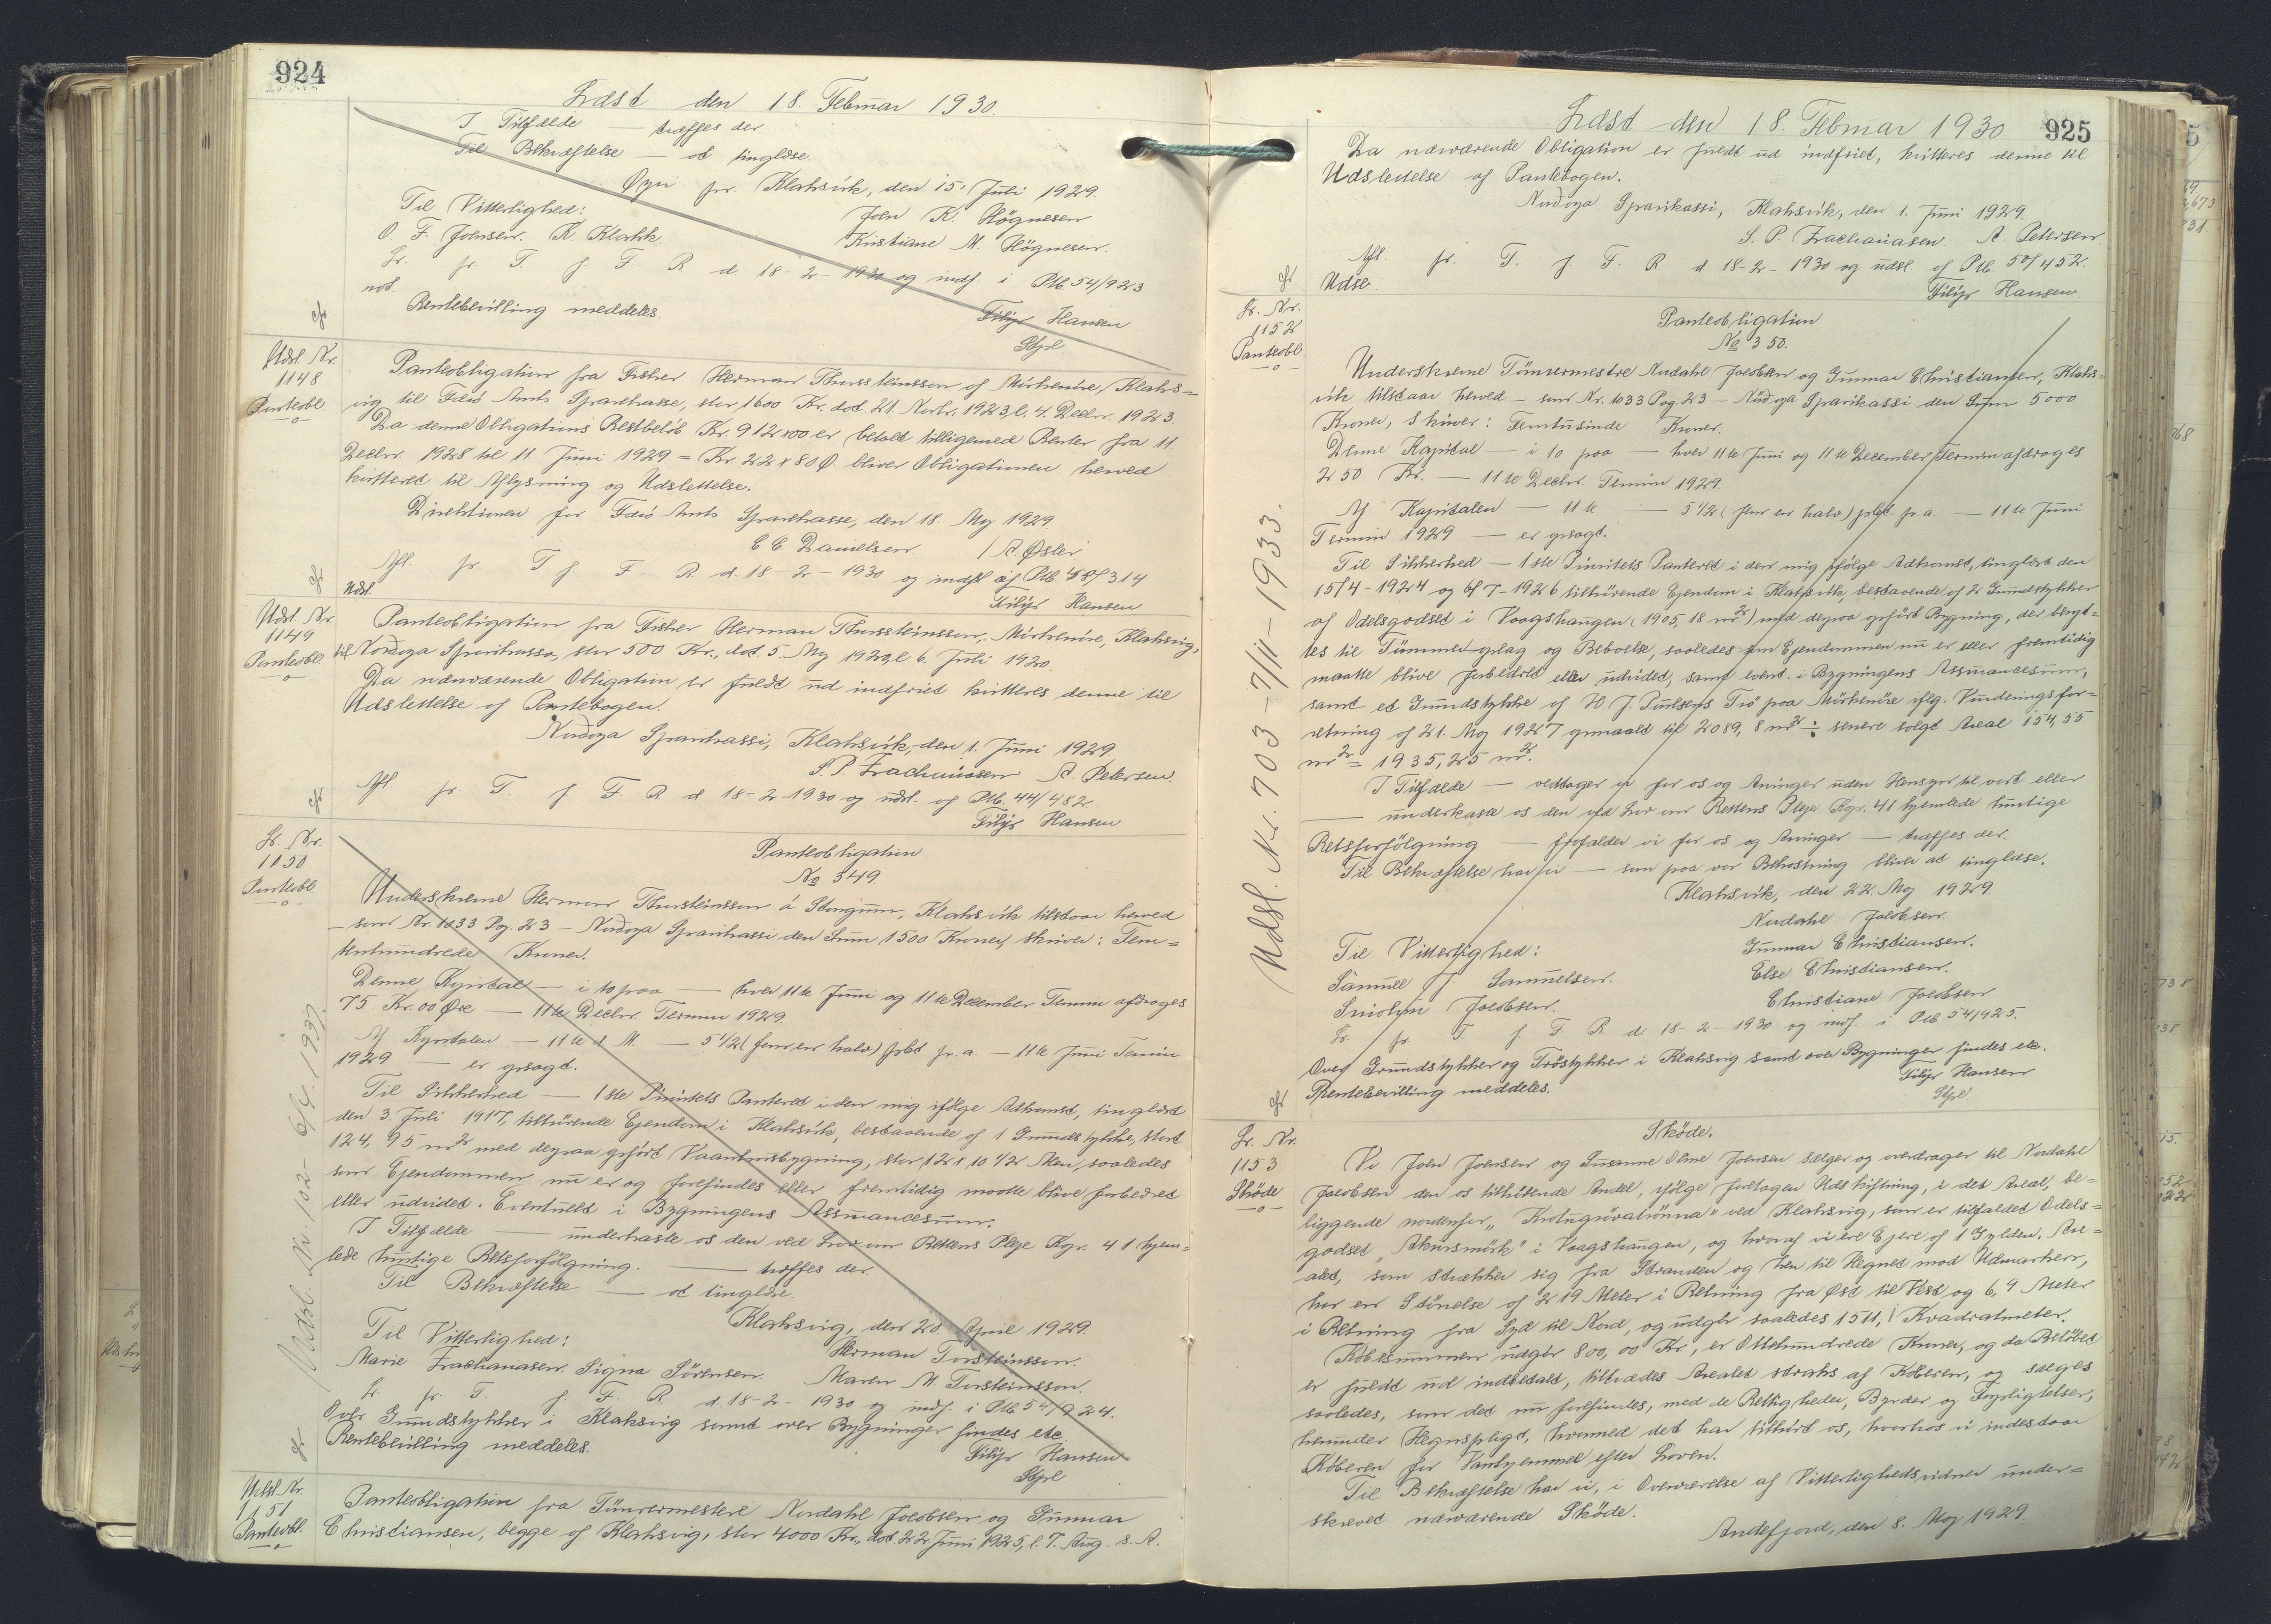 924
Læst den 18. Februar 1930.
I Tilfælde — træffes der
Til Bekræftelse — at tinglæse.
pr. Klaksvik, den 15. Juli 1929.
Til Vitterlighed: Joen K. Högnesen
O. F. Joensen. K. Klakk. Kristiane M. Högnesen.
Lr. pr. T. f. F. R. d. 18-2-1930 og indf. i Ptb. 54/923
not.
Rentebevilling meddeles. Filip Hansen
Udsl Nr.
1148
Panteobl.
Panteobligation fra Fisker Herman Thorsteinsson af Mirkenöre, Klaks-
vig til Færø Amts Sparekasse, stor 1600 Kr. dat. 21. Novbr. 1923, l. 4. Decbr. 1923.
Da denne Obligations Restbeløb Kr. 912x00 er betalt tilligemed Renter fra 11.
Decbr. 1928 til 11. Juni 1929 = Kr. 22x80 Ø. bliver Obligationen herved
kvitteret til Aflysning og Udslettelse.
Direktionen for Færø Amts Sparekasse, den 18. Maj 1929.
C. C. Danielsen. / A. Øster
Afl. pr. T. f. F. R. d. 18-2-1930 og af Ptb. 314
Udsl. Filip Hansen
Udsl. Nr.
1149
Panteobl.
Panteobligation fra Fisker Herman Thorsteinsson, Mirkenöre, Klaksvig,
til Nordoya Sparikassa, stor 500 Kr., dat. 5. Maj 1920, l. 6. Juli 1920.
Da nærværende Obligation er fuldt ud indfriet kvitteres denne til
Udslettelse af Pantebogen.
Nordoya Sparikassi, Klaksvik, den 1. Juni 1929.
S. P. Zachariasen A. Petersen.
Afl. pr. T. f. F. R. d. 18-2-1930 og udsl. af Ptb. 44/482.
Filip Hansen
Lr. Nr.
1150
Panteobl.
Panteobligation
No 349.
Underskrevne Herman Thorsteinsson á Stongum, Klaksvik tilstaar herved
— som Nr. 1033 Pag. 23 — Nordoya Sparikassi den Sum 1500 Kroner, skriver: Fem-
tenhundrede Kroner.
Denne Kapital — i 10 paa — hver 11te Juni og 11te December Termin afdrages
75 Kr. 00 Øre — 11te Decbr. Termin 1929.
Af Kapitalen — 11te d. M. — 5 1/2 (fem en halv) pCt. pr. a. — 11te Juni Termin
1929 — er opsagt.
Til Sikkerhed — 1ste Prioritets Panteret i den mig ifølge Adkomst, tinglæst
den 3. Juli 1917, tilhörende Ejendom i Klaksvik, bestaaende af 1 Grundstykke, stort
124,95 m2 med derpaa opført Vaaningsbygning, stor 12 x 10 1/2 Alen, saaledes
som Ejendommen nu er og forefindes eller fremtidig maatte blive forbedret
eller udvidet. Eventuelt i Bygningens Assurancesum.
I Tilfælde — underkaste os den ved Lov om Rettens Pleje Kap. 41 hjem-
lede hurtige Retsforfølgning. — træffes der
Til Bekræftelse — at tinglæse.
Klaksvig, den 20. April 1929.
Til Vitterlighed: Herman Torsteinsson.
Marie Zachariasen. Signa Sörensen. Maren M. Torsteinsson.
Lr. pr. T. f. F. R. d. 18-2-1930 og indf. i Ptb. 54/924.
Over Grundstykker i Klaksvig samt over Bygninger findes etc.
Rentebevilling meddeles. Filip Hansen
Udsl. Nr. 102 - 6/4. 1937.
Udsl. Nr.
1151
Panteobl.
Panteobligation fra Tömrermestere Nordahl Jacobsen og Gunnar
Christiansen, begge af Klaksvig, stor 4000 Kr., dat. 22. Juni 1925, l. 7. Aug. s. A.
925
Læst den 18. Februar 1930
Da nærværende Obligation er fuldt ud indfriet, kvitteres denne til
Udslettelse af Pantebogen.
Nordoya Sparikassi, Klaksvik, den 1. Juni 1929.
S. P. Zachariasen. A. Petersen.
Afl. pr. T. f. F. R. d. 18-2-1930 og udsl. af Ptb. 50/452.
Udsl. Filip Hansen
Lr. Nr.
1152
Panteobl.
Panteobligation
No 350.
Underskrevne Tömrermestre Nordahl Jacobsen og Gunnar Christiansen, Klaks-
vik tilstaar herved — som Nr. 1033 Pag. 23 — Nordoya Sparikassi den Sum 5000
Kroner, skriver: Femtusinde Kroner.
Denne Kapital — i 10 paa — hver 11te Juni og 11te December Termin afdrages
250 Kr. — 11te Decbr. Termin 1929.
Af Kapitalen — 11te — 5 1/2 (fem en halv) pCt. pr. a. — 11te Juni
Termin 1929 — er opsagt.
Til Sikkerhed — 1ste Prioritets Panteret i den mig ifølge Adkomst, tinglæst den
15/4-1924 og 6/7-1926 tilhörende Ejendom i Klaksvik, bestaaende af 2 Grundstykker
af Odelsgodset i Vaagshaugen (1905,18 m2) med derpaa opført Bygning, der benyt-
tes til Tömmeroplag og Beboelse, saaledes som Ejendommen nu er eller fremtidig
maatte blive forbedret eller udvidet, samt event. i Bygningens Assurancesum,
samt et Grundstykke af H. J. Poulsens Trö paa Mirkenöre iflg. Vurderingsfor-
retning af 21. Maj 1927 opmaalt til 2089,8 m2 ÷ senere solgt Areal 154,55
m2 = 1935,25 m2.
I Tilfælde — vedtager vi for os og Arvinger uden Hensyn til vort eller
— underkaste os den ved Lov om Rettens Pleje Kap. 41 hjemlede hurtige
Retsforfølgning — frafalder vi for os og Arvinger — træffes der.
Til Bekræftelse har vi — som paa vor Bekostning bliver at tinglæse.
Klaksvik, den 22. Maj 1929.
Nordahl Jacobsen
Til Vitterlighed: Gunnar Christiansen.
Samuel J. Samuelsen. Else Christiansen.
Jacobsen. Christiane Jacobsen
Lr. pr. T. f. F. R. d. 18-2-1930 og indf. i Ptb. 54/925.
Over Grundstykker og Tröstykker i Klaksvig samt over Bygninger findes etc.
Rentebevilling meddeles. Filip Hansen
Udsl. Nr. 703 - 7/11 - 1933.
Lr. Nr.
1153
Sköde
Sköde.
Vi Joen Joensen og Susanne Oline Joensen sælger og overdrager til Nordahl
Jacobsen den os tilhørende Andel, ifølge foretagen Udskiftning, i det Areal, be-
liggende nordenfor ved Klaksvig, som er tilfaldet Odels-
godset „Akursmörk" i Vaagshaugen, og hvoraf vi ere Ejere af 1 Gylden. Are-
alet, som strækker sig fra Stranden og hen til Hegnet mod Udmarken,
har en Störrelse af 219 Meter i Retning fra Øst til Vest og 6,9 Meter
i Retning fra Syd til Nord, og udgör saaledes 1511,1 Kvadratmeter.
Köbesummen udgör 800,00 Kr., er Ottehundrede Kroner, og da Belöbet
er fuldt ud indbetalt, tiltrædes Arealet straks af Köberen, og sælges
saaledes, som det nu forefindes, med de Rettigheder, Byrder og Forpligtelser,
herunder Hegnspligt, hvormed det har tilhört os, hvorhos vi indestaar
Köberen for Vanhjemmel efter Loven.
Til Bekræftelse har vi, i Overværelse af Vitterlighedsvidner under-
skrevet nærværende Sköde.
Andefjord, den 8. Maj 1929.